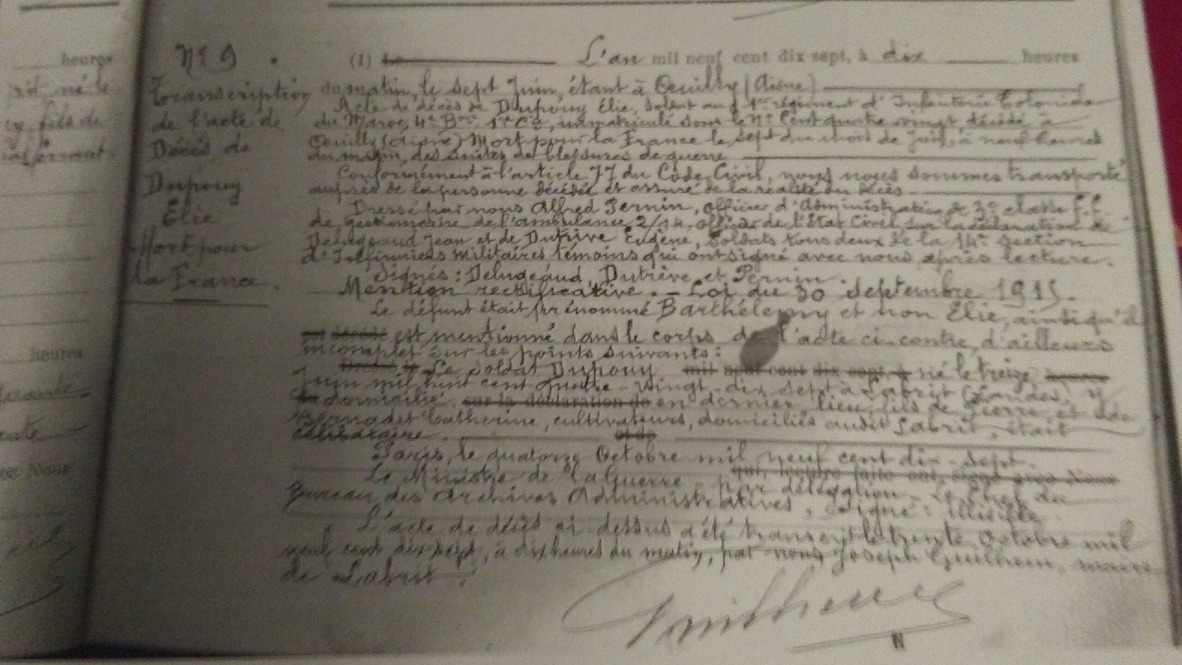 heures
Nº 9.
(1) Le L'an mil neuf cent dix sept, à dix heures
Transcription
de l'acte de
Décès de
Dupouy
Élie
Mort pour
la France.
du matin, le sept Juin, étant à Oeuilly (Aisne)
Acte de décès de Dupouy Élie, soldat au 1er régiment d'Infanterie Coloniale
du Maroc, 4e Bon 1e Cie, immatriculé sous le Nº Cent quatre vingt, décédé à
Oeuilly (Aisne) Mort pour la France le sept du mois de Juin, à neuf heures
du matin, des suites de blessures de guerre
Conformément à l'article 77 du Code Civil, nous nous sommes transporté
auprès de la personne décédée et assuré de la réalité du décès
Dressé par nous Alfred Pernin, officier d'Administration de 3e classe
de gestionnaire de l'ambulance 2/14, officier de l'État Civil sur la déclaration de
Delugeaud Jean et de Dutrève Eugène, soldats tous deux de la 14e section
d'Infirmiers Militaires témoins qui ont signé avec nous après lecture.
Signés: Delugeaud, Dutrève et Pernin.
Mention rectificative. - Loi du 30 septembre 1915.
Le défunt était prénommé Barthélemy et non Élie, ainsi qu'il
est décédé est mentionné dans le corps de l'acte ci-contre, d'ailleurs
incomplet sur les points suivants:
Le soldat Dupouy mil neuf cent dix sept, à né le treize
Juin mil huit cent quatre-vingt-dix sept à Labrit (Landes), y
domicilié sur la déclaration de en dernier lieu, fils de Pierre et de
Bernadet Catherine, cultivateurs, domiciliés audit Labrit, était
célibataire. et de
Paris, le quatorze Octobre mil neuf cent dix-sept.
Le Ministre de la Guerre qui, lecture faite ont signé avec Nous
par délégation. Le Chef du
Bureau des Archives Administratives, signé: illisible.
L'acte de décès ci-dessus a été transcrit le trente Octobre mil
neuf cent dix-sept, à dix heures du matin, par nous Joseph Guilhem, maire
de Labrit.
Guilhem
N